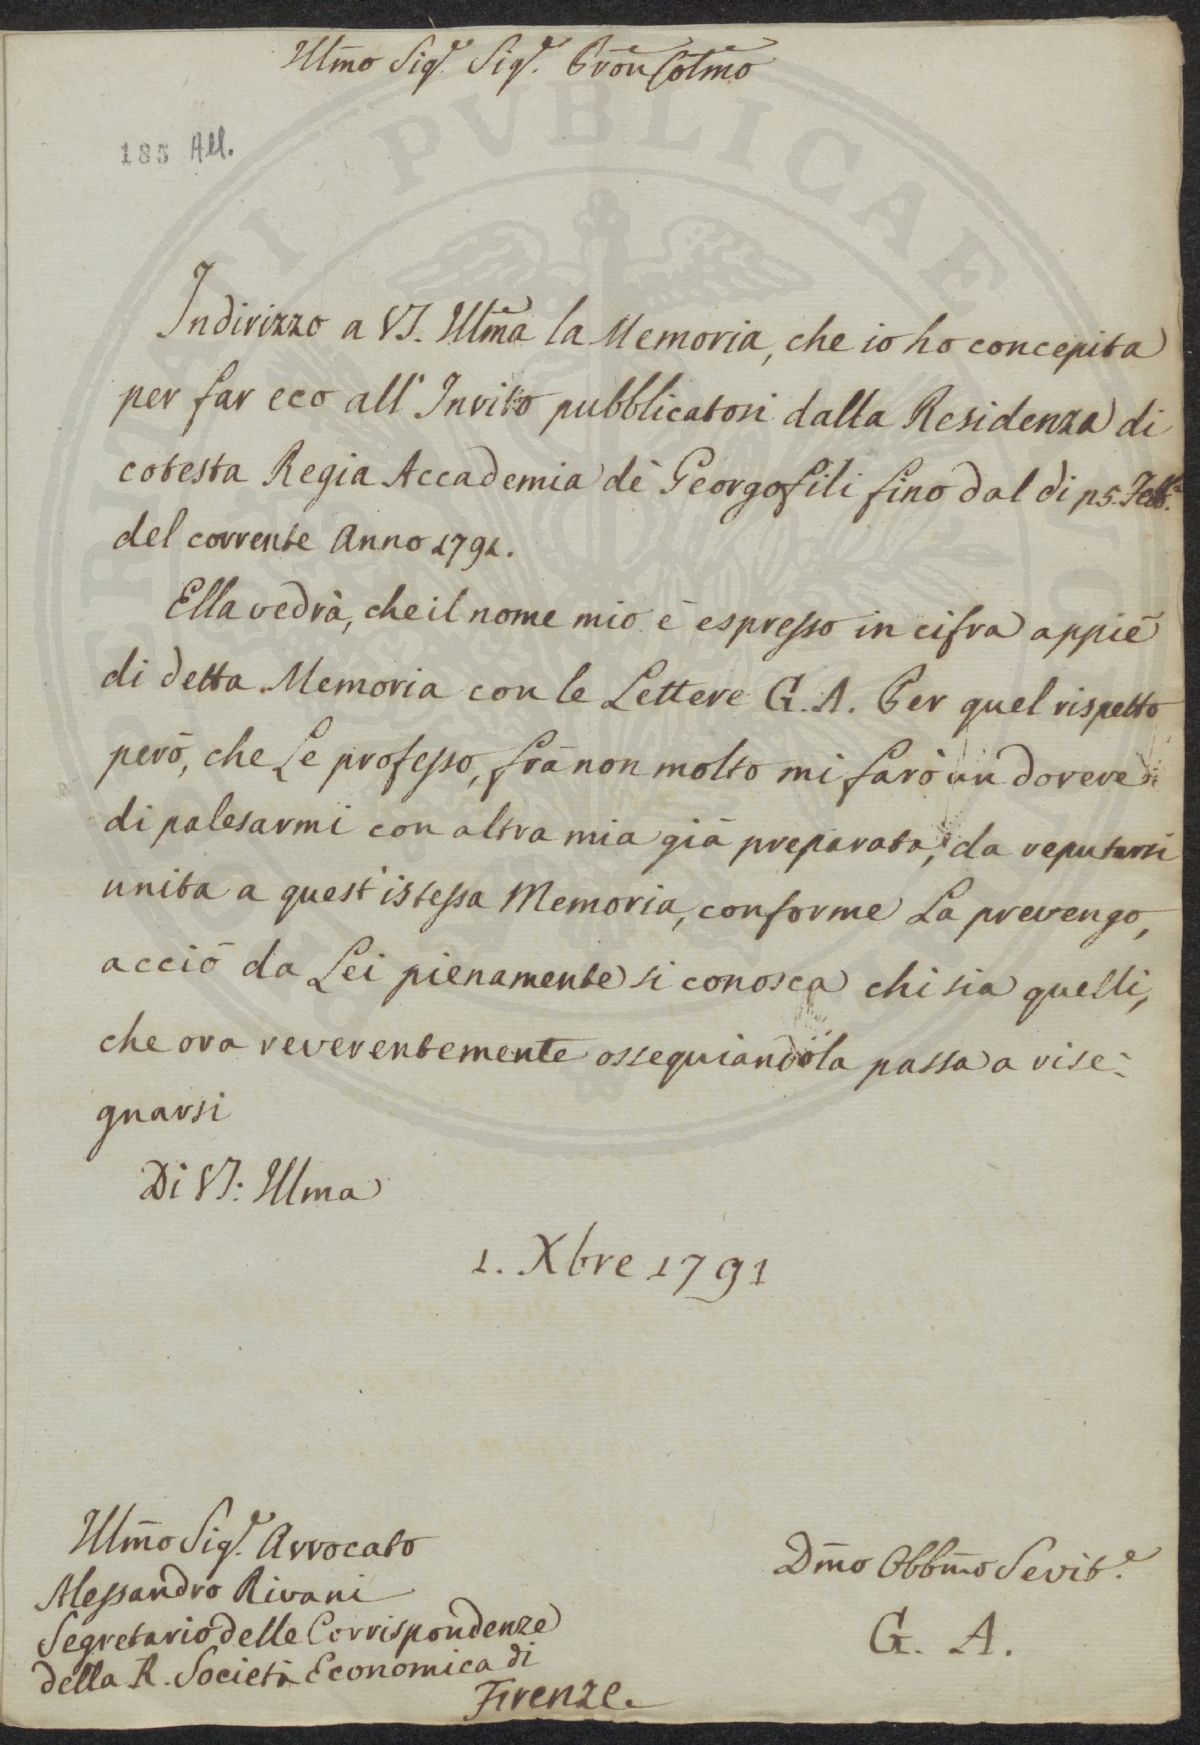 Illmo Sigr. Sigr. Pron Colmo
185 All.
Indirizzo a VS. Illma la Memoria, che io ho concepita
per far eco all' Invito pubblicatosi dalla Residenza di
cotesta Regia Accademia dè Georgofili fino dal di 15. Febb.
del corrente Anno 1791.
Ella vedrà, che il nome mio è espresso in cifra appiè
di detta Memoria con le Lettere G. A. Per quel rispetto
però, che Le professo, frà non molto mi farò un dovere
di palesarmi con altra mia già preparata, da reputarsi
unita a quest' istessa Memoria, conforme La prevengo,
acciò da Lei pienamente si conosca chi sia quelli,
che ora reverentemente ossequiandola passa a rise-
gnarsi
Di VS: Illma
1. Xbre 1791
Illmo Sigr. Avvocato
Alessandro Rivani
Segretario delle Corrispondenze
della R. Società Economica di
Firenze.
Dmo Obbmo Sevit.e
G. A.
PUBLICAE